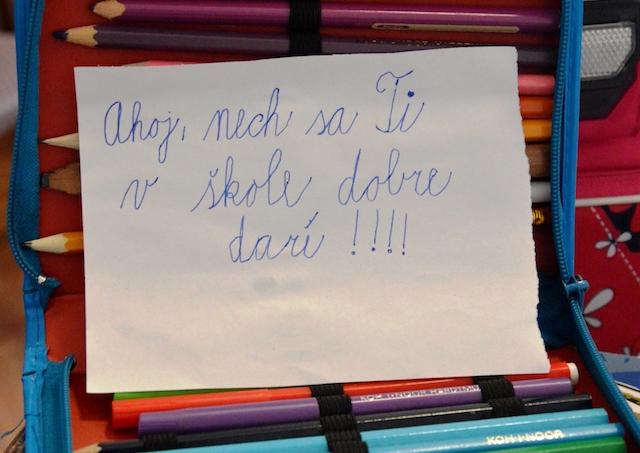 Ahoj, nech sa Ti
v škole dobre
darí !!!!
KOH-I-NOOR